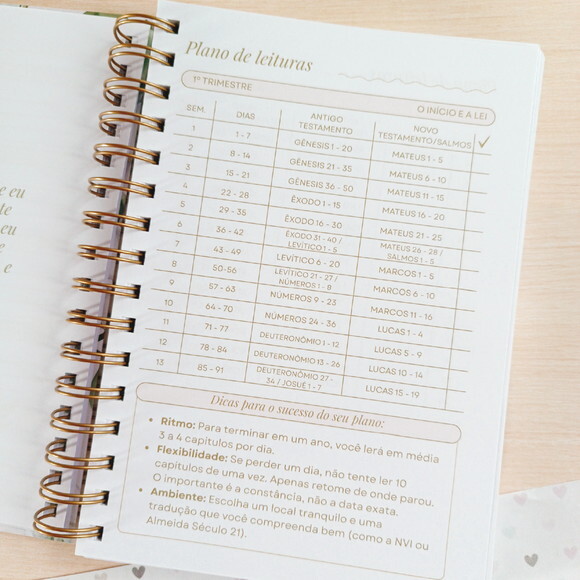 Plano de leituras
1º TRIMESTRE O INÍCIO E A LEI
SEM. DIAS ANTIGO TESTAMENTO NOVO TESTAMENTO/SALMOS ✓
1 1 - 7 GÊNESIS 1 - 20 MATEUS 1 - 5
2 8 - 14 GÊNESIS 21 - 35 MATEUS 6 - 10
3 15 - 21 GÊNESIS 36 - 50 MATEUS 11 - 15
4 22 - 28 ÊXODO 1 - 15 MATEUS 16 - 20
5 29 - 35 ÊXODO 16 - 30 MATEUS 21 - 25
6 36 - 42 ÊXODO 31 - 40 / LEVÍTICO 1 - 5 MATEUS 26 - 28 / SALMOS 1 - 5
7 43 - 49 LEVÍTICO 6 - 20 MARCOS 1 - 5
8 50-56 LEVÍTICO 21 - 27 / NÚMEROS 1 - 8 MARCOS 6 - 10
9 57 - 63 NÚMEROS 9 - 23 MARCOS 11 - 16
10 64 - 70 NÚMEROS 24 - 36 LUCAS 1 - 4
11 71 - 77 DEUTERONÔMIO 1 - 12 LUCAS 5 - 9
12 78 - 84 DEUTERONÔMIO 13 - 26 LUCAS 10 - 14
13 85 - 91 DEUTERONÔMIO 27 - 34 / JOSUÉ 1 - 7 LUCAS 15 - 19
Dicas para o sucesso do seu plano:
• Ritmo: Para terminar em um ano, você lerá em média
3 a 4 capítulos por dia.
• Flexibilidade: Se perder um dia, não tente ler 10
capítulos de uma vez. Apenas retome de onde parou.
O importante é a constância, não a data exata.
• Ambiente: Escolha um local tranquilo e uma
tradução que você compreenda bem (como a NVI ou
Almeida Século 21).
e eu
eu
e